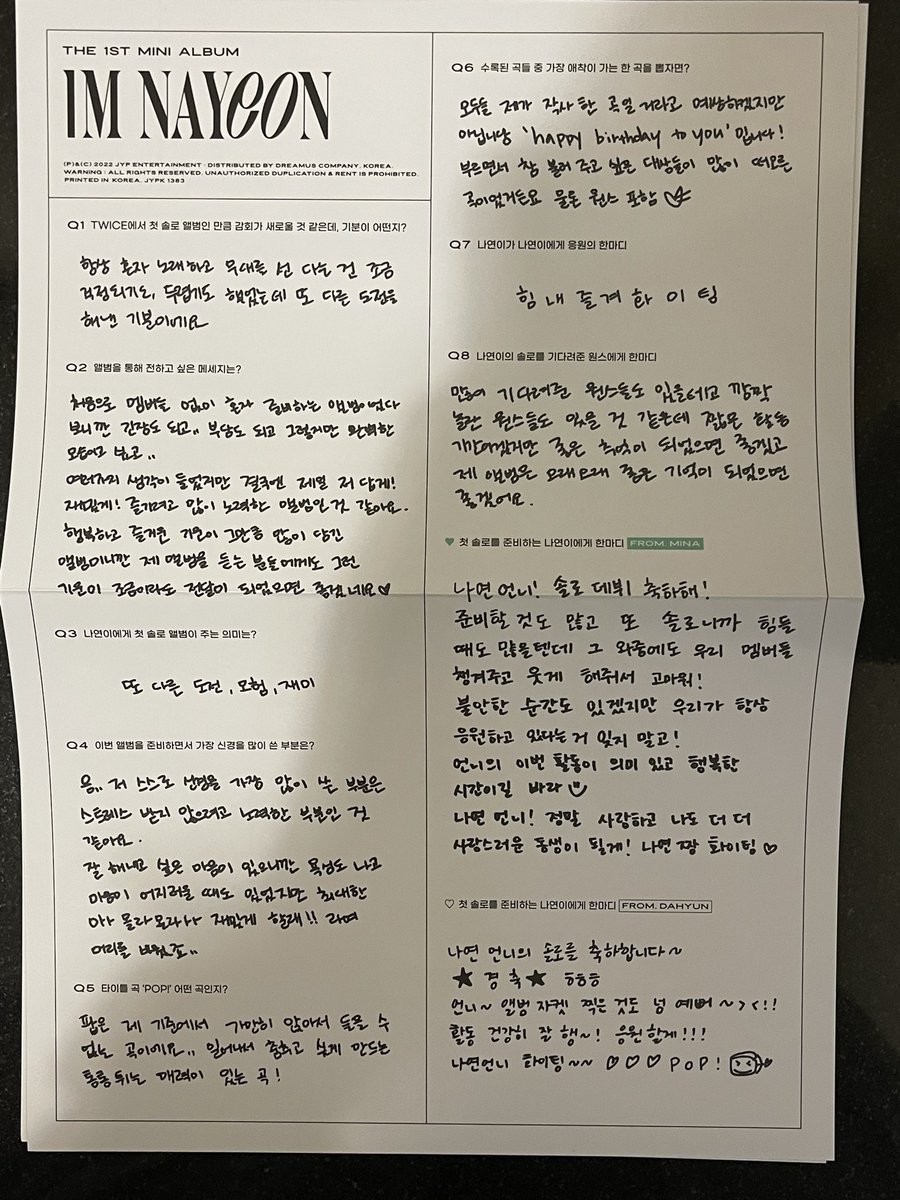 THE 1ST MINI ALBUM
IM NAYEON
(P)&(C) 2022 JYP ENTERTAINMENT · DISTRIBUTED BY DREAMUS COMPANY, KOREA.
WARNING : ALL RIGHTS RESERVED. UNAUTHORIZED DUPLICATION & RENT IS PROHIBITED.
PRINTED IN KOREA. JYPK 1383
Q1 TWICE에서 첫 솔로 앨범인 만큼 감회가 새로울 것 같은데, 기분이 어떤지?
항상 혼자 노래하고 무대를 선 다는 건 조금
걱정되기도, 두렵기도 했었는데 또 다른 도전을
해낸 기분이에요
Q2 앨범을 통해 전하고 싶은 메세지는?
처음으로 멤버들 없이 혼자 준비하는 앨범이었다
보니깐 긴장도 되고,, 부담도 되고 그렇지만 완벽한
모습이고 싶고,,
여러가지 생각이 들었지만 결국엔 제일 저 답게!
재밌게! 즐기려고 많이 노력한 앨범인것 같아요.
행복하고 즐거운 기운이 그만큼 많이 담긴
앨범이니깐 제 앨범을 듣는 분들에게도 그런
기운이 조금이라도 전달이 되었으면 좋겠네요♡
Q3 나연이에게 첫 솔로 앨범이 주는 의미는?
또 다른 도전, 모험, 재미
Q4 이번 앨범을 준비하면서 가장 신경을 많이 쓴 부분은?
음,, 저 스스로 신경을 가장 많이 쓴 부분은
스트레스 받지 않으려고 노력한 부분인 것
같아요.
잘 해내고 싶은 마음이 있으니깐 욕심도 나고
마음이 어지러울 때도 있었지만 최대한
아아 몰라몰라아 재밌게 할래!! 라며
머리를 비웠죠,,
Q5 타이틀 곡 'POP!' 어떤 곡인지?
팝은 제 기준에서 가만히 앉아서 들을 수
없는 곡이에요,, 일어나서 춤추고 싶게 만드는
통통 튀는 매력이 있는 곡!
Q6 수록된 곡들 중 가장 애착이 가는 한 곡을 뽑자면?
모두들 제가 작사 한 곡일 거라고 예상하겠지만
아닙니당 'happy birthday to you' 입니다!
부르면서 참 불러 주고 싶은 대상들이 많이 떠오른
곡이었거든요 물론 원스 포함
Q7 나연이가 나연이에게 응원의 한마디
힘 내 즐 겨 화 이 팅
Q8 나연이의 솔로를 기다려준 원스에게 한마디
많이 기다려준 원스들도 있을테고 깜짝
놀란 원스들도 있을 것 같은데 짧은 활동
기간이겠지만 좋은 추억이 되었으면 좋겠고
제 앨범은 오래오래 좋은 기억이 되었으면
좋겠어요.
♥ 첫 솔로를 준비하는 나연이에게 한마디 FROM. MINA
나연 언니! 솔로 데뷔 축하해!
준비할 것도 많고 또 솔로니까 힘들
때도 많을텐데 그 와중에도 우리 멤버들
챙겨주고 웃게 해줘서 고마워!
불안한 순간도 있겠지만 우리가 항상
응원하고 있다는 거 잊지 말고!
언니의 이번 활동이 의미 있고 행복한
시간이길 바라
나연 언니! 정말 사랑하고 나도 더 더
사랑스러운 동생이 될게! 나연 짱 화이팅♡
♡ 첫 솔로를 준비하는 나연이에게 한마디 FROM. DAHYUN
나연 언니의 솔로를 축하합니다~
★ 경 축 ★ ㅎㅎㅎ
언니~ 앨범 자켓 찍은 것도 넘 예뻐~><!!
활동 건강히 잘 행~! 응원할게!!!
나연언니 화이팅~~ ♡♡♡ POP!